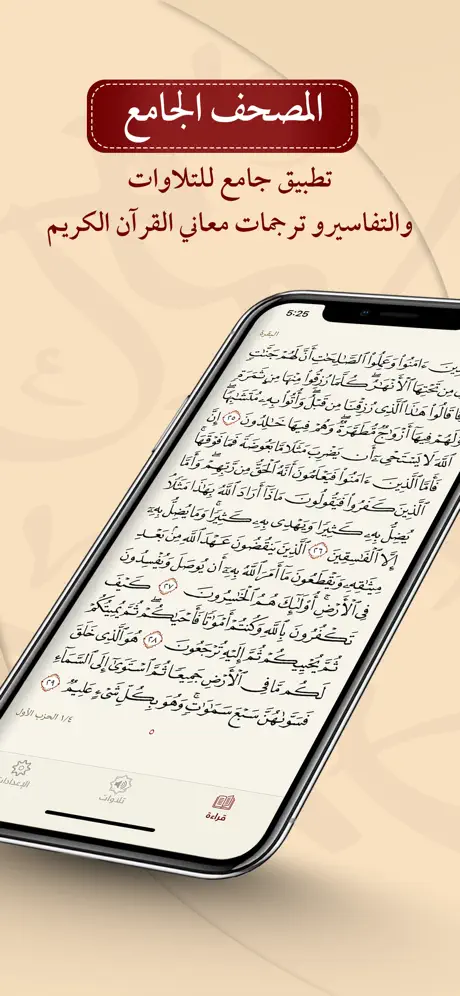 المصحف الجامع
تطبيق جامع للتلاوات
والتفاسير و ترجمات معاني القرآن الكريم
5:25
البقرة
ءَامَنُوا۟ وَعَمِلُوا۟ ٱلصَّـٰلِحَـٰتِ أَنَّ لَهُمْ جَنَّـٰتٍ
مِن تَحْتِهَا ٱلْأَنْهَـٰرُ ۖ كُلَّمَا رُزِقُوا۟ مِنْهَا مِن ثَمَرَةٍ
قَالُوا۟ هَـٰذَا ٱلَّذِى رُزِقْنَا مِن قَبْلُ ۖ وَأُتُوا۟ بِهِۦ مُتَشَـٰبِهًا ۖ
وَلَهُمْ فِيهَآ أَزْوَٰجٌ مُّطَهَّرَةٌ ۖ وَهُمْ فِيهَا خَـٰلِدُونَ ٢٥ إِنَّ
ٱللَّهَ لَا يَسْتَحْىِۦٓ أَن يَضْرِبَ مَثَلًا مَّا بَعُوضَةً فَمَا فَوْقَهَا ۚ
فَأَمَّا ٱلَّذِينَ ءَامَنُوا۟ فَيَعْلَمُونَ أَنَّهُ ٱلْحَقُّ مِن رَّبِّهِمْ ۖ وَأَمَّا
ٱلَّذِينَ كَفَرُوا۟ فَيَقُولُونَ مَاذَآ أَرَادَ ٱللَّهُ بِهَـٰذَا مَثَلًا ۘ
يُضِلُّ بِهِۦ كَثِيرًا وَيَهْدِى بِهِۦ كَثِيرًا ۚ وَمَا يُضِلُّ بِهِۦٓ
إِلَّا ٱلْفَـٰسِقِينَ ٢٦ ٱلَّذِينَ يَنقُضُونَ عَهْدَ ٱللَّهِ مِنۢ بَعْدِ
مِيثَـٰقِهِۦ وَيَقْطَعُونَ مَآ أَمَرَ ٱللَّهُ بِهِۦٓ أَن يُوصَلَ وَيُفْسِدُونَ
فِى ٱلْأَرْضِ ۚ أُو۟لَـٰٓئِكَ هُمُ ٱلْخَـٰسِرُونَ ٢٧ كَيْفَ
تَكْفُرُونَ بِٱللَّهِ وَكُنتُمْ أَمْوَٰتًا فَأَحْيَـٰكُمْ ۖ ثُمَّ يُمِيتُكُمْ
ثُمَّ يُحْيِيكُمْ ثُمَّ إِلَيْهِ تُرْجَعُونَ ٢٨ هُوَ ٱلَّذِى خَلَقَ
لَكُم مَّا فِى ٱلْأَرْضِ جَمِيعًا ثُمَّ ٱسْتَوَىٰٓ إِلَى ٱلسَّمَآءِ
فَسَوَّىٰهُنَّ سَبْعَ سَمَـٰوَٰتٍ ۚ وَهُوَ بِكُلِّ شَىْءٍ عَلِيمٌ ٢٩
٥
١/٤ الحزب الأول
قراءة
تلاوات
الإعدادات